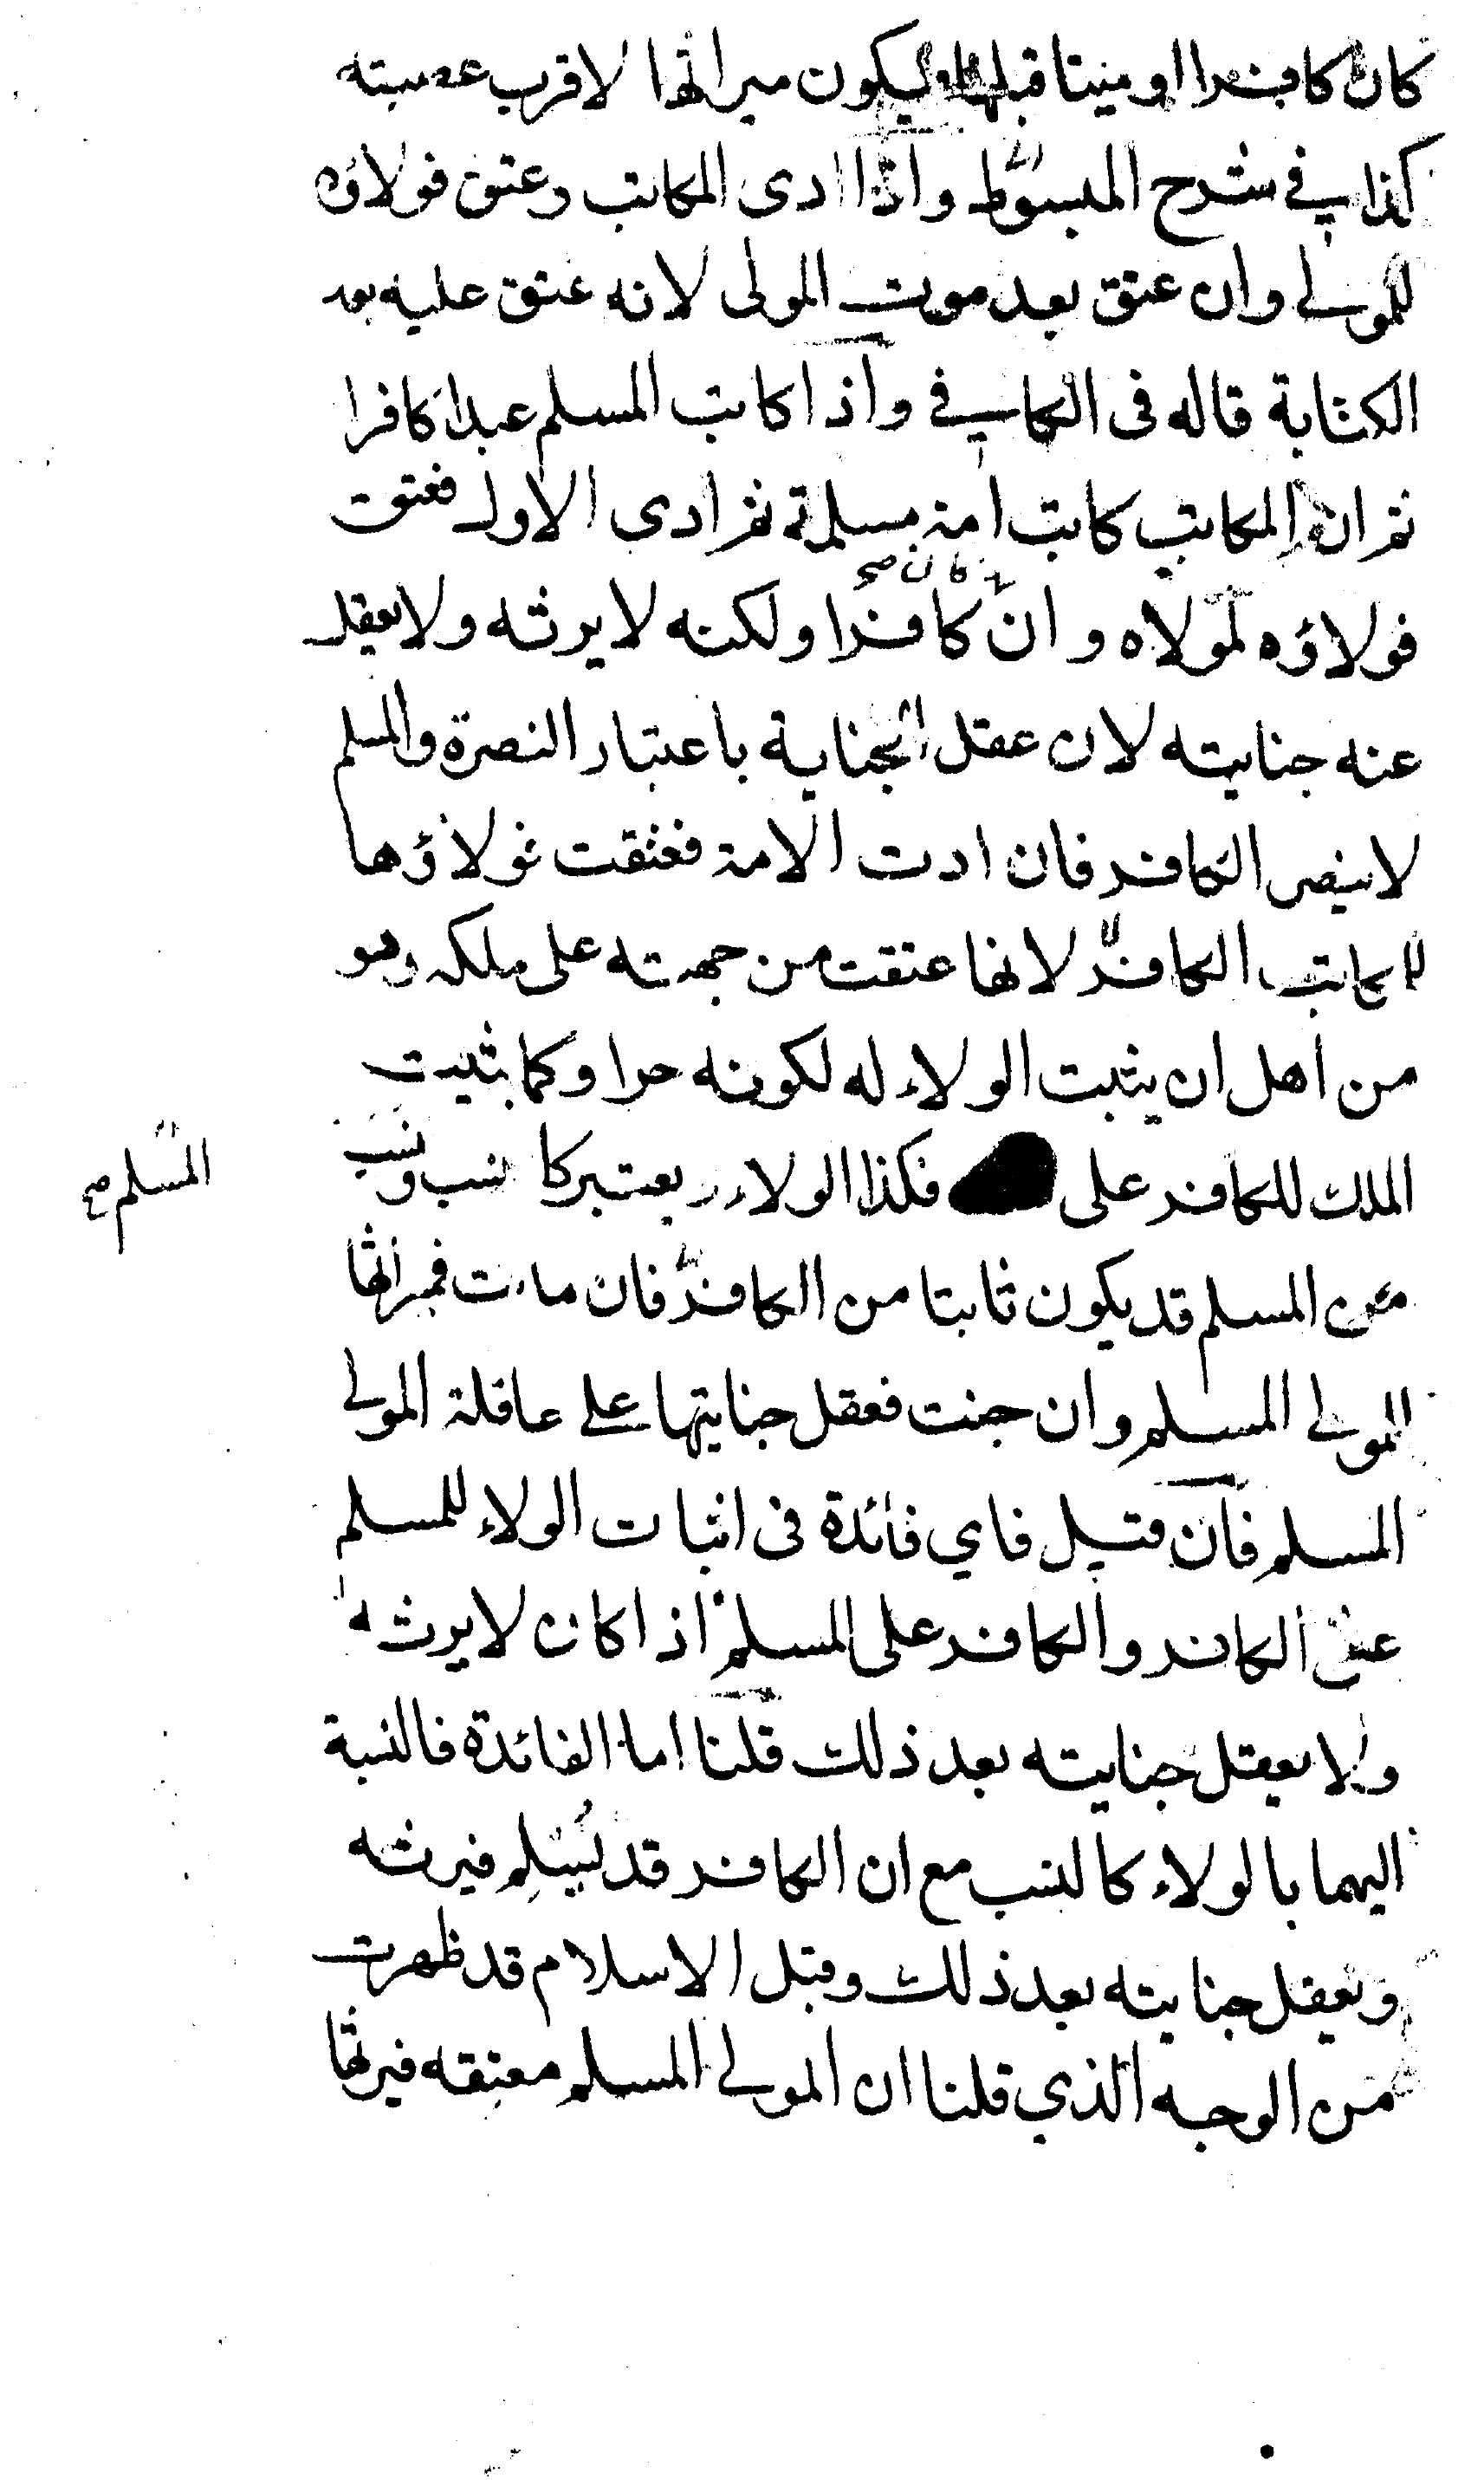 كان كافرا او ميتا قبلها فيكون ميراثها لاقرب عصبته
كذا في شرح المبسوط واذا ادى المكاتب وعتق فولاؤه
للمولى وان عتق بعد موت المولى لانه عتق عليه بعد
الكتابة قاله فى الكافي واذا كاتب المسلم عبدا كافرا
ثم ان المكاتب كاتب امة مسلمة ثم ادى الاول فعتق
كان صح
فولاؤه لمولاه وان كافرا ولكنه لا يرثه ولا يعقل
عنه جنايته لان عقل الجناية باعتبار النصرة والمسلم
لا ينصر الكافر فان ادت الامة فعتقت فولاؤها
للمكاتب الكافر لانها عتقت من جهته على ملكه وهو
من اهل ان يثبت الولاء له لكونه حرا وكما يثبت
الملك للكافر على فكذا الولاء يعتبر كالنسب ونسب
المسلم صح
المسلم قد يكون ثابتا من الكافر فان ماتت فميراثها
للمولى المسلم وان جنت فعقل جنايتها على عاقلة المولى
المسلم فان قيل فاي فائدة فى اثبات الولاء للمسلم
على الكافر والكافر على المسلم اذا كان لا يرثه
ولا يعقل جنايته بعد ذلك قلنا اما الفائدة فالنسبة
اليهما بالولاء كالنسب مع ان الكافر قد يسلم فيرثه
ويعقل جنايته بعد ذلك وقبل الاسلام قد ظهرت
من الوجه الذي قلنا ان المولى المسلم معتقه فيرثها